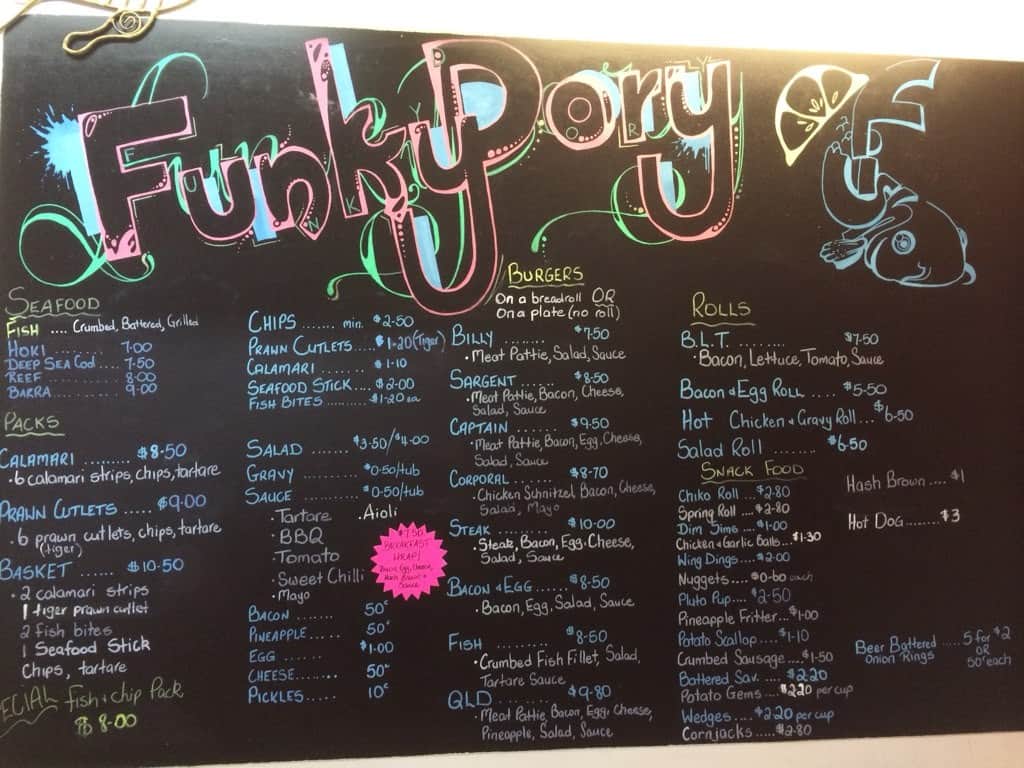 Funky Pory
F
SEAFOOD
FISH .... Crumbed, Battered, Grilled
HOKI ......... 7.00
DEEP SEA COD .... 7.50
REEF ........ 8.00
BARRA ........ 9.00
PACKS
CALAMARI ....... $8.50
• 6 calamari strips, chips, tartare
PRAWN CUTLETS .... $9.00
• 6 prawn cutlets, chips, tartare
(tiger)
BASKET ...... $10.50
• 2 calamari strips
1 tiger prawn cutlet
2 fish bites
1 Seafood Stick
Chips, tartare
ECIAL Fish & chip Pack
$8.00
CHIPS ....... min. $2.50
PRAWN CUTLETS .... $1.20 (Tiger)
CALAMARI ....... $1.10
SEAFOOD STICK .... $2.00
FISH BITES ......... $1.20 ea
SALAD $3.50/$4.00
GRAVY $0.50/tub
SAUCE .... $0.50/tub
• Tartare • Aioli
• BBQ
Tomato
• Sweet Chilli
• Mayo
$7.50
BREAKFAST
WRAP!
Bacon, Egg, Cheese,
Hash Brown &
Sauce
BACON ...... 50c
PINEAPPLE ..... 50c
EGG ...... $1.00
CHEESE ........ 50c
PICKLES ..... 10c
BURGERS
On a breadroll OR
On a plate (no roll)
BILLY ......... $7.50
• Meat Pattie, Salad, Sauce
SARGENT ...... $8.50
• Meat Pattie, Bacon, Cheese,
Salad, Sauce
CAPTAIN ....... $9.50
• Meat Pattie, Bacon, Egg, Cheese,
Salad, Sauce
CORPORAL ..... $8.70
• Chicken Schnitzel, Bacon, Cheese,
Salad, Mayo
STEAK ........ $10.00
• Steak, Bacon, Egg, Cheese,
Salad, Sauce
BACON & EGG ..... $8.50
• Bacon, Egg, Salad, Sauce
FISH ......... $8.50
• Crumbed Fish Fillet, Salad,
Tartare Sauce
QLD .......... $9.80
• Meat Pattie, Bacon, Egg, Cheese,
Pineapple, Salad, Sauce
ROLLS
B.L.T. ......... $7.50
• Bacon, Lettuce, Tomato, Sauce
Bacon & Egg Roll .... $5.50
Hot Chicken & Gravy Roll ... $6.50
Salad Roll ........ $6.50
SNACK FOOD
Chiko Roll .... $2.80
Spring Roll .... $2.80
Dim Sims .... $1.00
Chicken & Garlic Balls .... $1.30
Wing Dings .... $2.00
Nuggets .... $0.60 each
Pluto Pup .... $2.50
Pineapple Fritter ... $1.00
Potato Scallop .... $1.10
Crumbed Sausage .... $1.50
Battered Sav. .... $2.20
Potato Gems .... $2.20 per cup
Wedges .... $2.20 per cup
Cornjacks ..... $2.80
Hash Brown .... $1
Hot Dog ....... $3
Beer Battered
Onion Rings ..... 5 for $2
OR
50c each